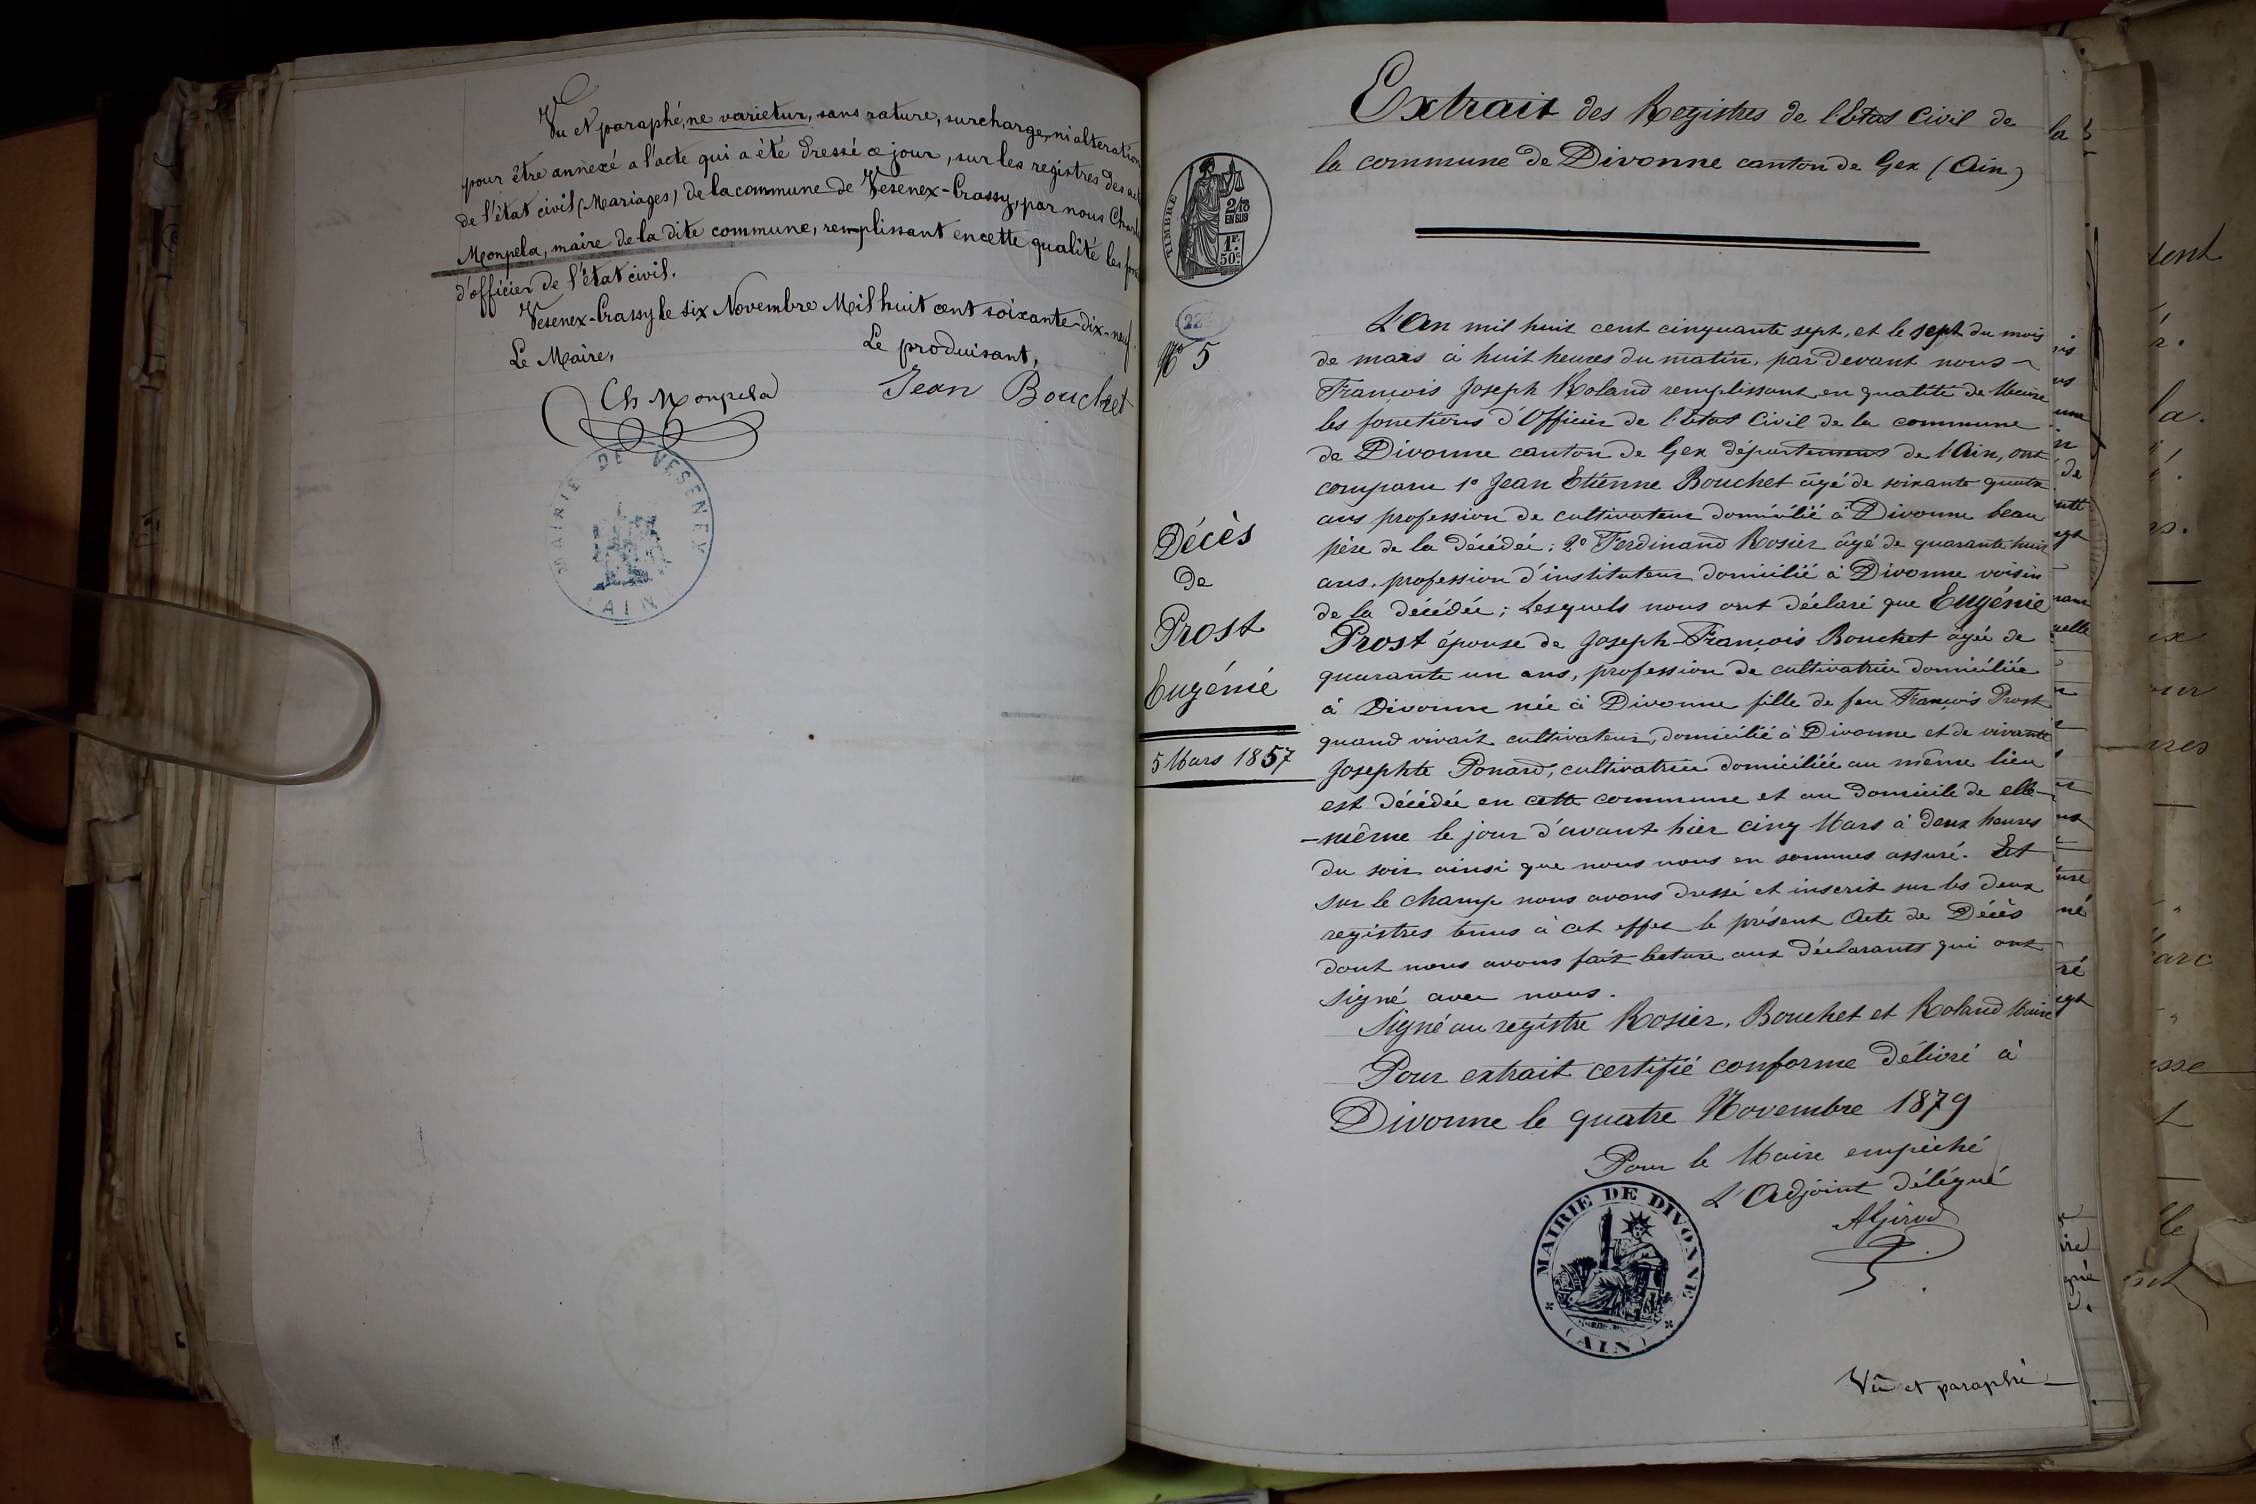 Vu et paraphé, ne varietur, sans rature, surcharge, ni alteration
pour être annexé a l'acte qui a été dressé ce jour, sur les registres des
de l'état civil (Mariages) de la commune de Vesenex-Crassy, par nous
Monpela, maire de la dite commune, remplissant en cette qualité les
d'officier de l'état civil.
Vesenex-Crassy le six Novembre Mil huit cent soixante-dix-neuf.
Le Maire,
Le produisant,
Ch Monpela
Jean Bouchet
MAIRIE DE VESENEX
(AIN)
Extrait des Registres de l'Etat Civil de
la commune de Divonne canton de Gex (Ain)
TIMBRE
2/10
EN SUS
1F.
50c.
No 5
Décès
de
Prost
Eugénie
5 Mars 1857
L'An mil huit cent cinquante sept, et le sept du mois
de mars à huit heures du matin, par devant nous
François Joseph Roland remplissant en qualité de Maire
les fonctions d'Officier de l'Etat Civil de la commune
de Divonne canton de Gex département de l'Ain, ont
comparu 1º Jean Etienne Bouchet âgé de soixante quatre
ans profession de cultivateur domicilié à Divonne beau
père de la décédée; 2º Ferdinand Rosier âgé de quarante huit
ans, profession d'instituteur domicilié à Divonne voisin
de la décédée; Lesquels nous ont déclaré que Eugénie
Prost épouse de Joseph-François Bouchet âgée de
quarante un ans, profession de cultivatrice domiciliée
à Divonne née à Divonne fille de feu François Prost
quand vivait cultivateur, domicilié à Divonne et de vivante
Josephte Ponard, cultivatrice domiciliée au même lieu
est décédée en cette commune et au domicile de elle
-même le jour d'avant hier cinq Mars à deux heures
du soir ainsi que nous nous en sommes assuré. Et
sur le champ nous avons dressé et inscrit sur les deux
registres tenus à cet effet le présent Acte de Décès
dont nous avons fait lecture aux déclarants qui ont
signé avec nous.
Signé au registre Rosier, Bouchet et Roland Maire
Pour extrait certifié conforme délivré à
Divonne le quatre Novembre 1879
Pour le Maire empêché
L'Adjoint délégué
AGirod
MAIRIE DE DIVONNE
(AIN)
Vu et paraphé